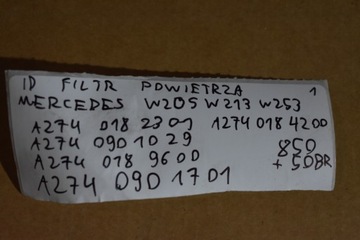 ID FILTR POWIETRZA 1
MERCEDES W205 W213 W253
A274 018 2301 1274 018 4200
A274 090 1029 850
A274 018 9600 + 50BR
A274 090 1701